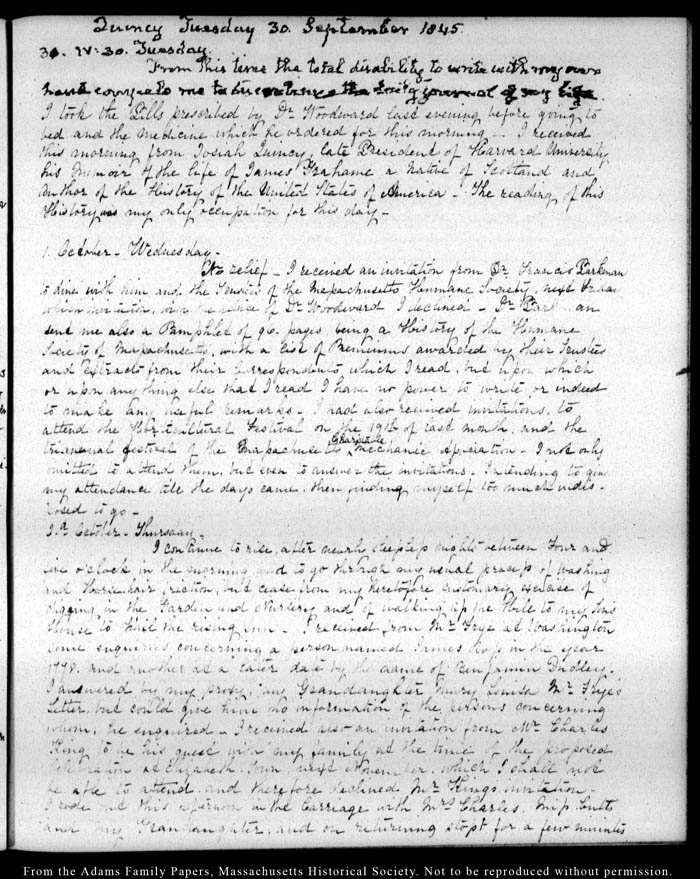 Quincy Tuesday 30. September 1845.
30. IV:30. Tuesday.
From this time the total disability to write with my own
hand compels me to the of my life.
I took the Pills prescribed by Dr Woodward last evening before going to
bed and the medicine which he ordered for this morning - I received
this morning from Josiah Quincy, late President of Harvard University
his Memoir of the life of James Grahame a Native of Scotland and
Author of the History of the United States of America - The reading of this
History was my only occupation for this day -
1. October - Wednesday -
No relief - I received an invitation from Dr. Francis Parkman
to dine with him and the Trustees of the Massachusetts Humane Society, next Friday
which invitation, of Dr Woodward I declined - Dr Parkman
sent me also a Pamphlet of 96. pages, being a History of the Humane
Society of Massachusetts, with a List of Premiums awarded by their Trustees
and extracts from their correspondents which I read, but upon which
or upon any thing else that I read I have no power to write or indeed
to make any useful remarks - I had also received invitations, to
attend the Horticultural Festival on the 19th of last month, and the
triennial festival of the Massachusetts Charitable Mechanic Association - I not only
omitted to attend them, but even to answer the invitations - Intending to give
my attendance till the days came, then finding myself too much indis-
posed to go -
2d October - Thursday -
I continue to rise, after nearly sleepless nights between four and
five o'clock in the morning and to go through my usual process of washing
and Horsehair friction, but cease from my heretofore customary exercise of
digging in the Garden and Nursery and of walking up the Hill to my Sons
House to Hail the rising Sun - I received from Mr Frye at Washington
some enquiries concerning a person named James Ross in the year
1778. and another at a later date by the name of Benjamin Dudley.
I answered by my proxy, my Grandaughter Mary Louisa Mr Frye's
Letter, but could give him no information of the persons concerning
whom, he enquired - I received also an invitation from Mr Charles
King to be his guest with my family at the time of the proposed
Celebration at Elizabeth Town, next November, which I shall not
be able to attend and therefore declined Mr Kings invitation -
I rode out this afternoon in the Carriage with Mrs Charles, Miss Cutts
and my Grandaughter, and on returning stopt for a few minutes
From the Adams Family Papers, Massachusetts Historical Society. Not to be reproduced without permission.